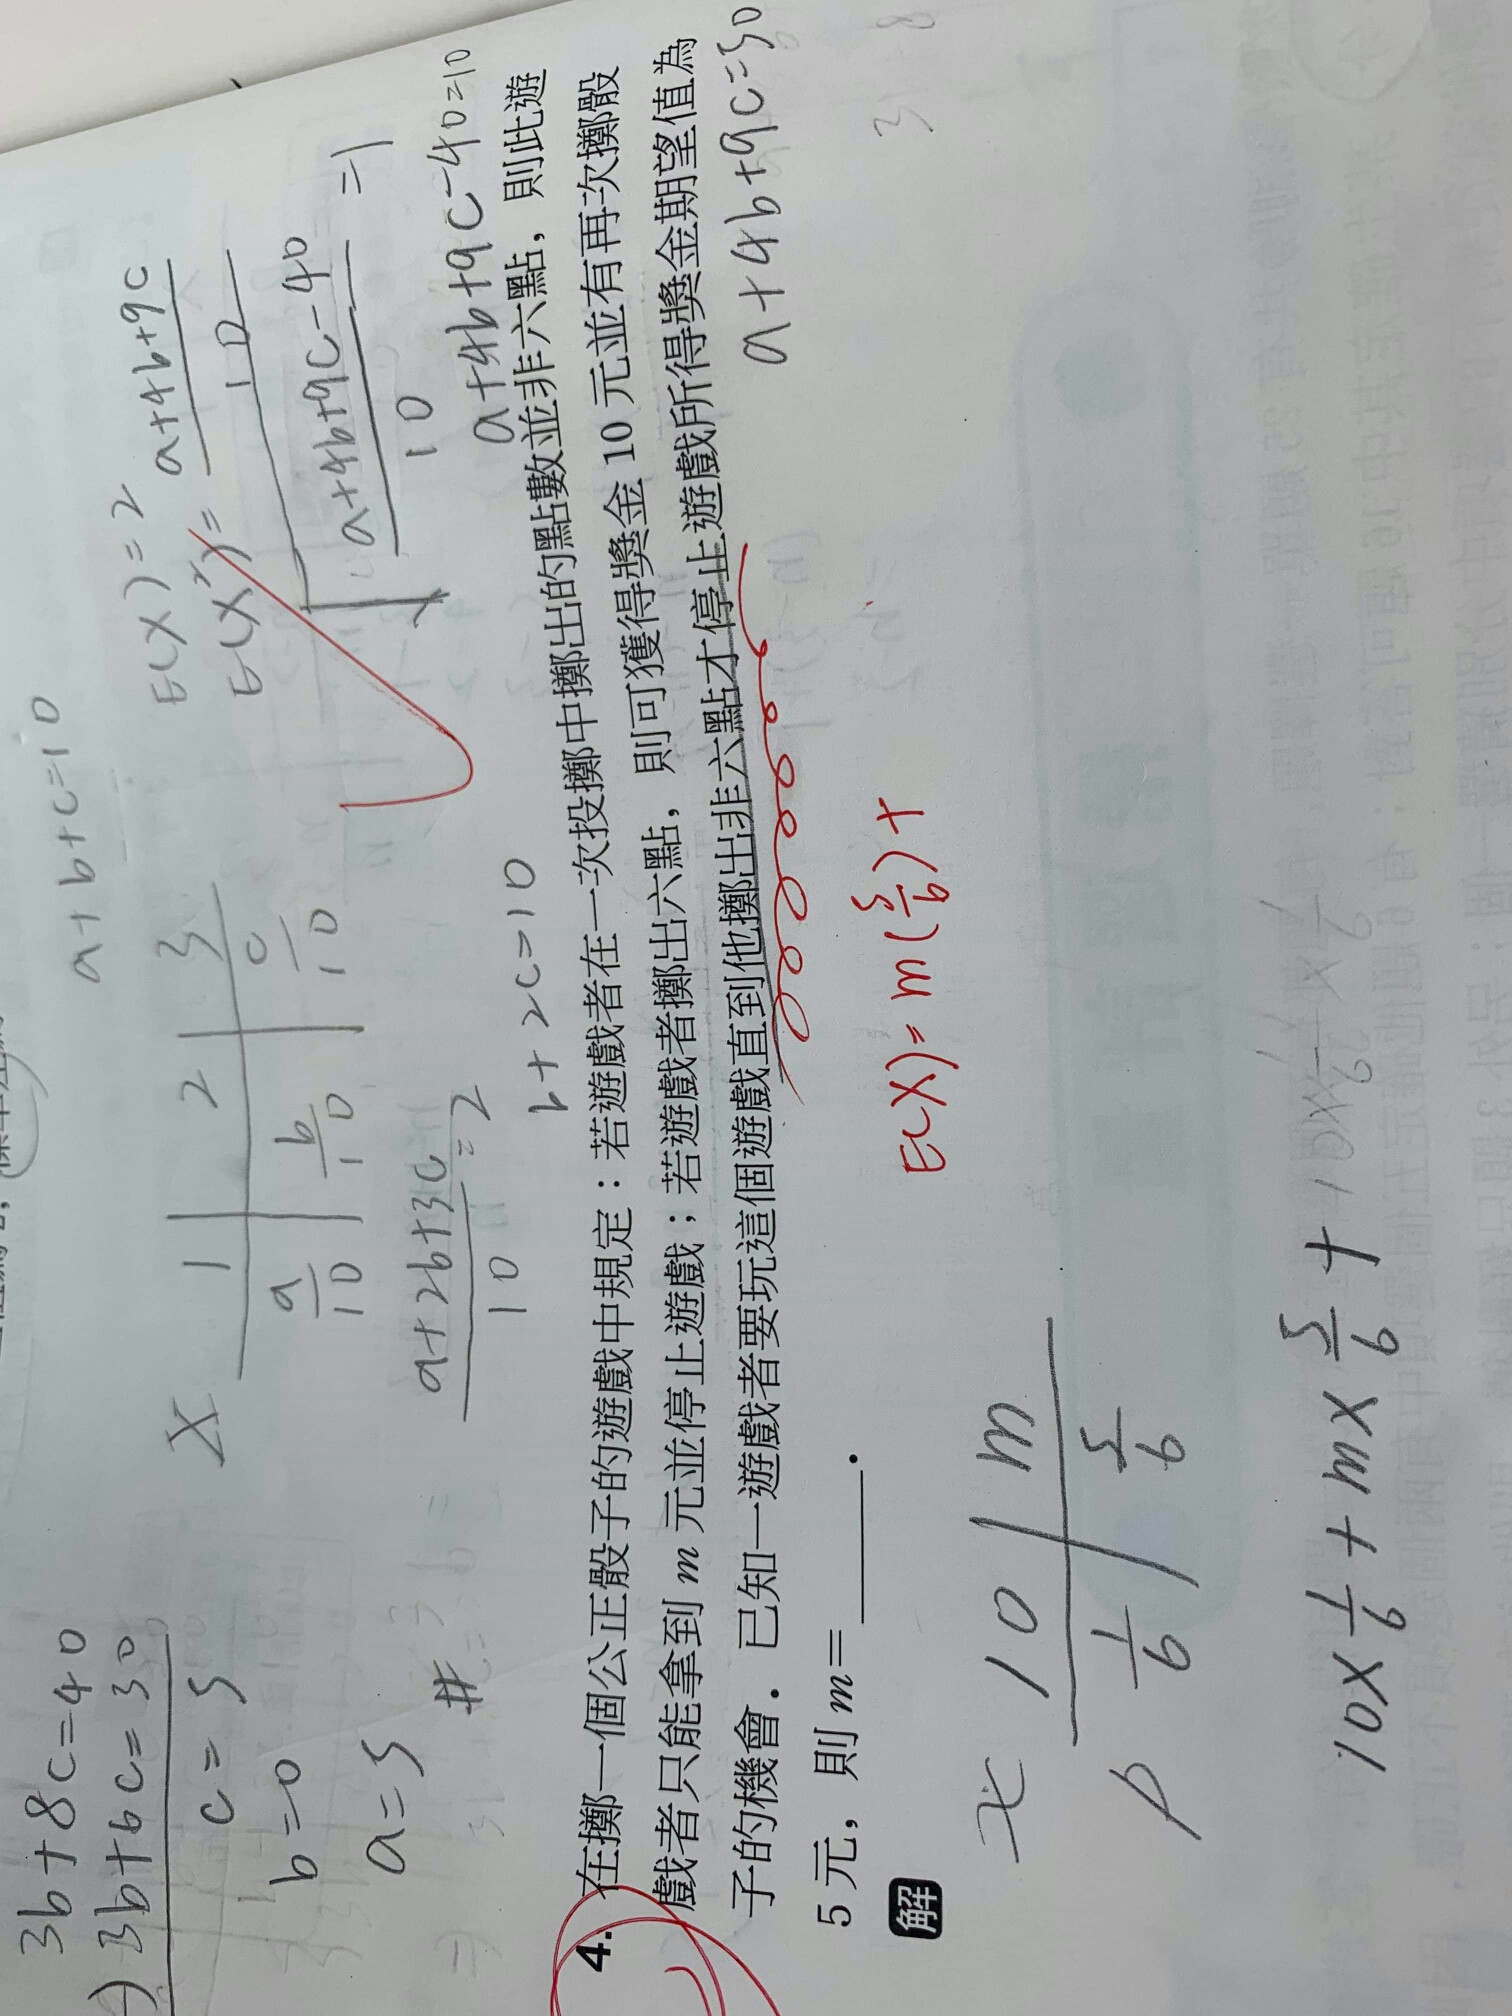 3b+8c=40
-) 3b+6c=30
c=5
b=0
a=5
#
a+b+c=10
X 1 2 3
a/10 b/10 c/10
a+2b+3c/10=2
b+2c=10
E(X)=2
E(X²)=a+4b+9c/10
√a+4b+9c-40/10=1
a+4b+9c-40=10
a+4b+9c=50
4. 在擲一個公正骰子的遊戲中規定：若遊戲者在一次投擲中擲出的點數並非六點，則此遊
戲者只能拿到 m 元並停止遊戲；若遊戲者擲出六點，則可獲得獎金 10 元並有再次擲骰
子的機會．已知一遊戲者要玩這個遊戲直到他擲出非六點才停止遊戲所得獎金期望值為
5 元，則 m=______．
解
E(X)=m(5/6)+
x 10 m
p 1/6 5/6
10×1/6+m×5/6+